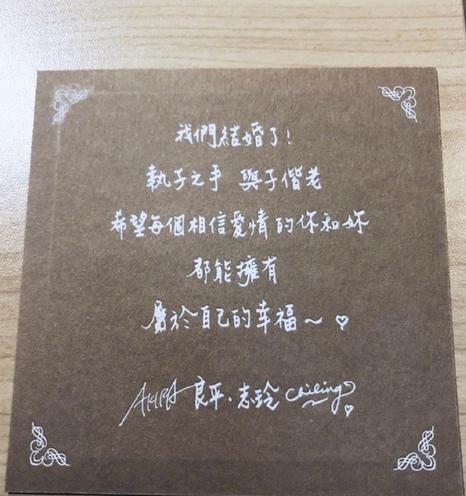 我們結婚了!
執子之手 與子偕老
希望每個相信愛情的你和妳
都能擁有
屬於自己的幸福~♡
AKIRA 良平.志玲 chiling♡